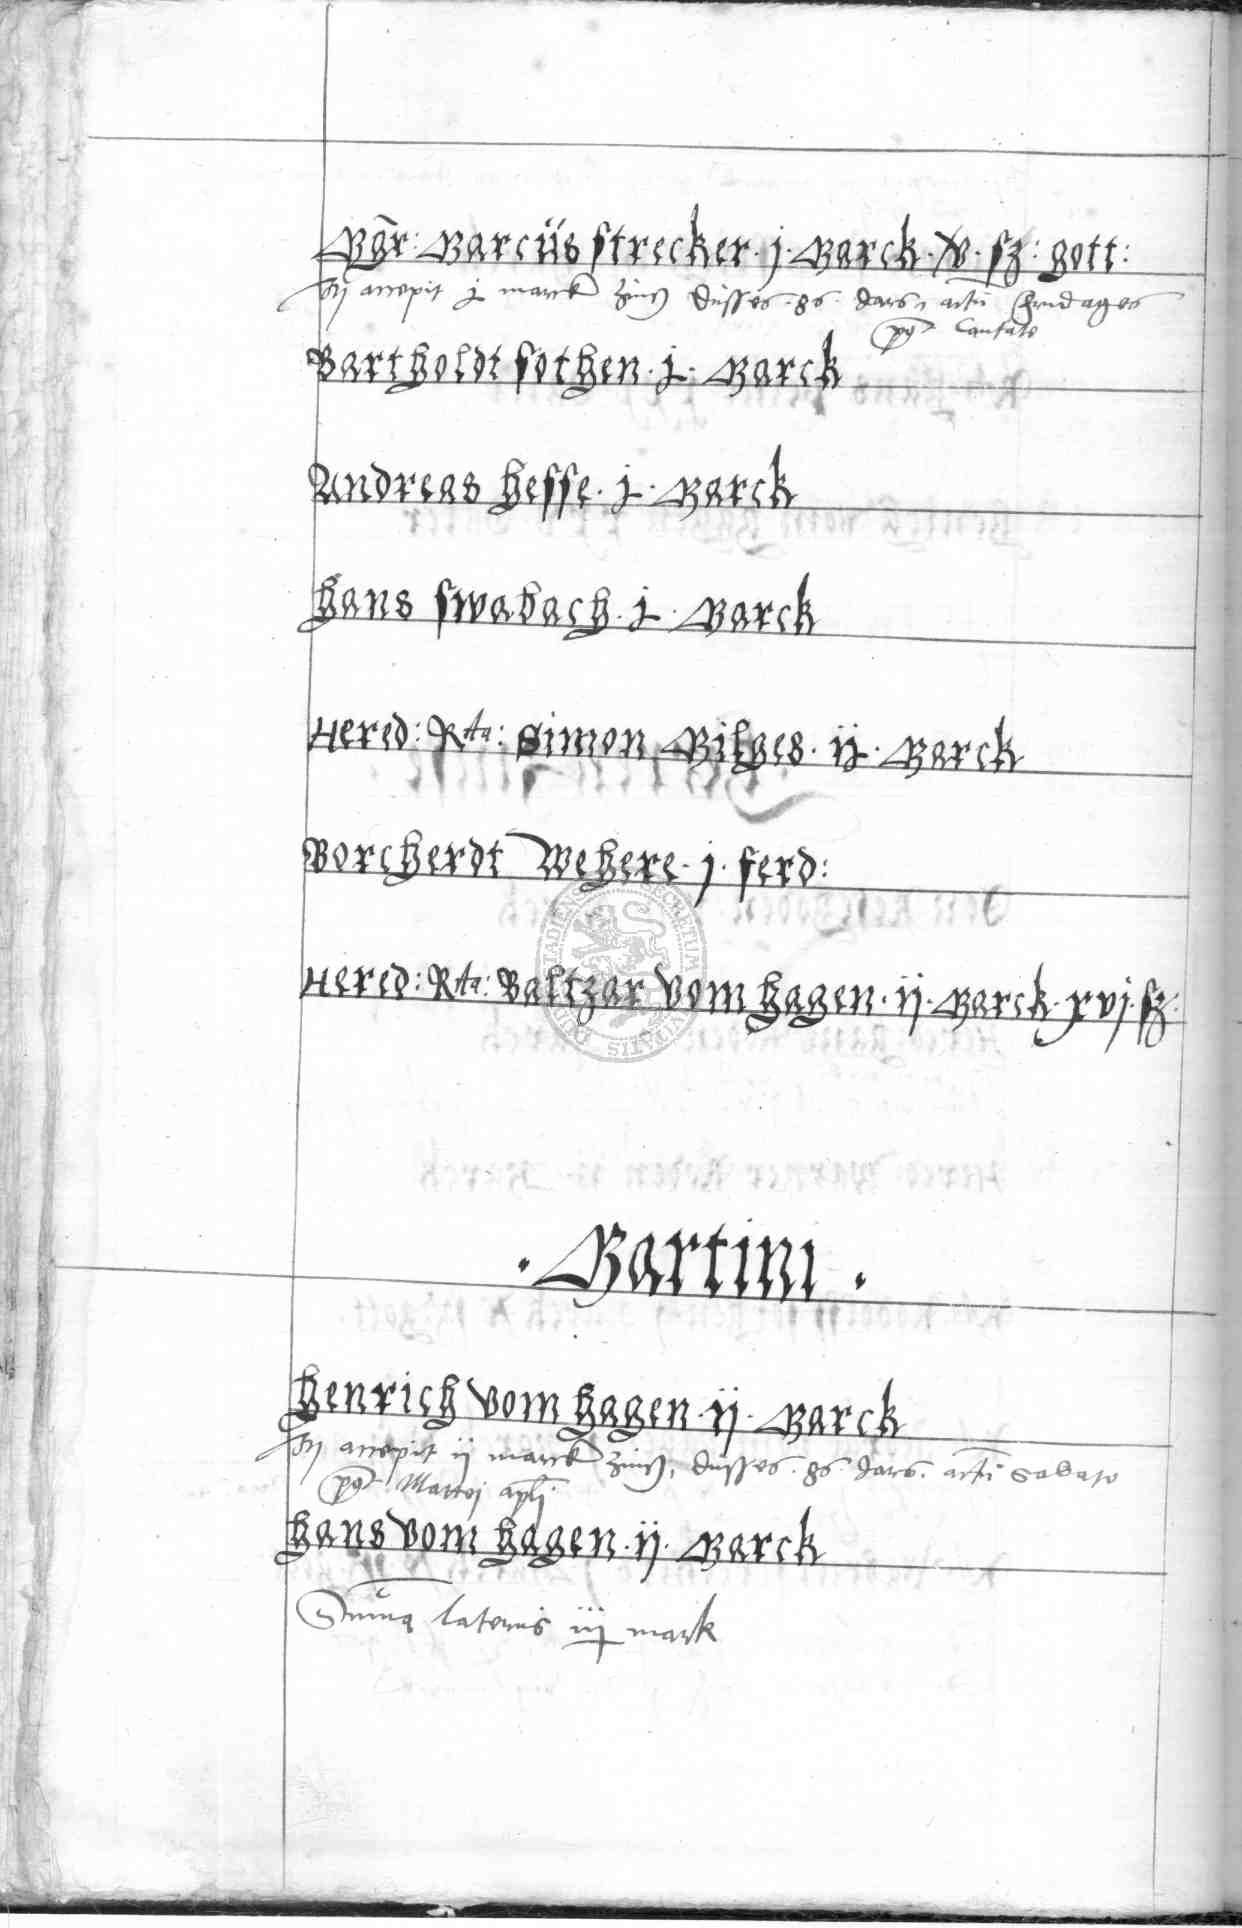 Mgr: Marcus Strecker · j · Marck · v · ß: gott:
accepit j marck Zinß dusses · 86 · Jars, actū Fridages
pꝰ Cantate
Bartholdt Sothen · j · Marck
Andreas Hesse · j · Marck
Hans Swabach · j · Marck
Hered: Rta: Simon Gilges · ij · Marck
Borcherdt Wehere · j · ferd:
Hered: Rta: Baltzar vom Hagen · ij · Marck · xvj · ß:
SECRETUM
· Martini ·
Henrich vom Hagen · ij · Marck
accepit ij marck Zinß, dusses · 86 · Jars · actū Sabato
pꝰ Mattei apli
Hans vom Hagen · ij · Marck
Suma lateris iij mark